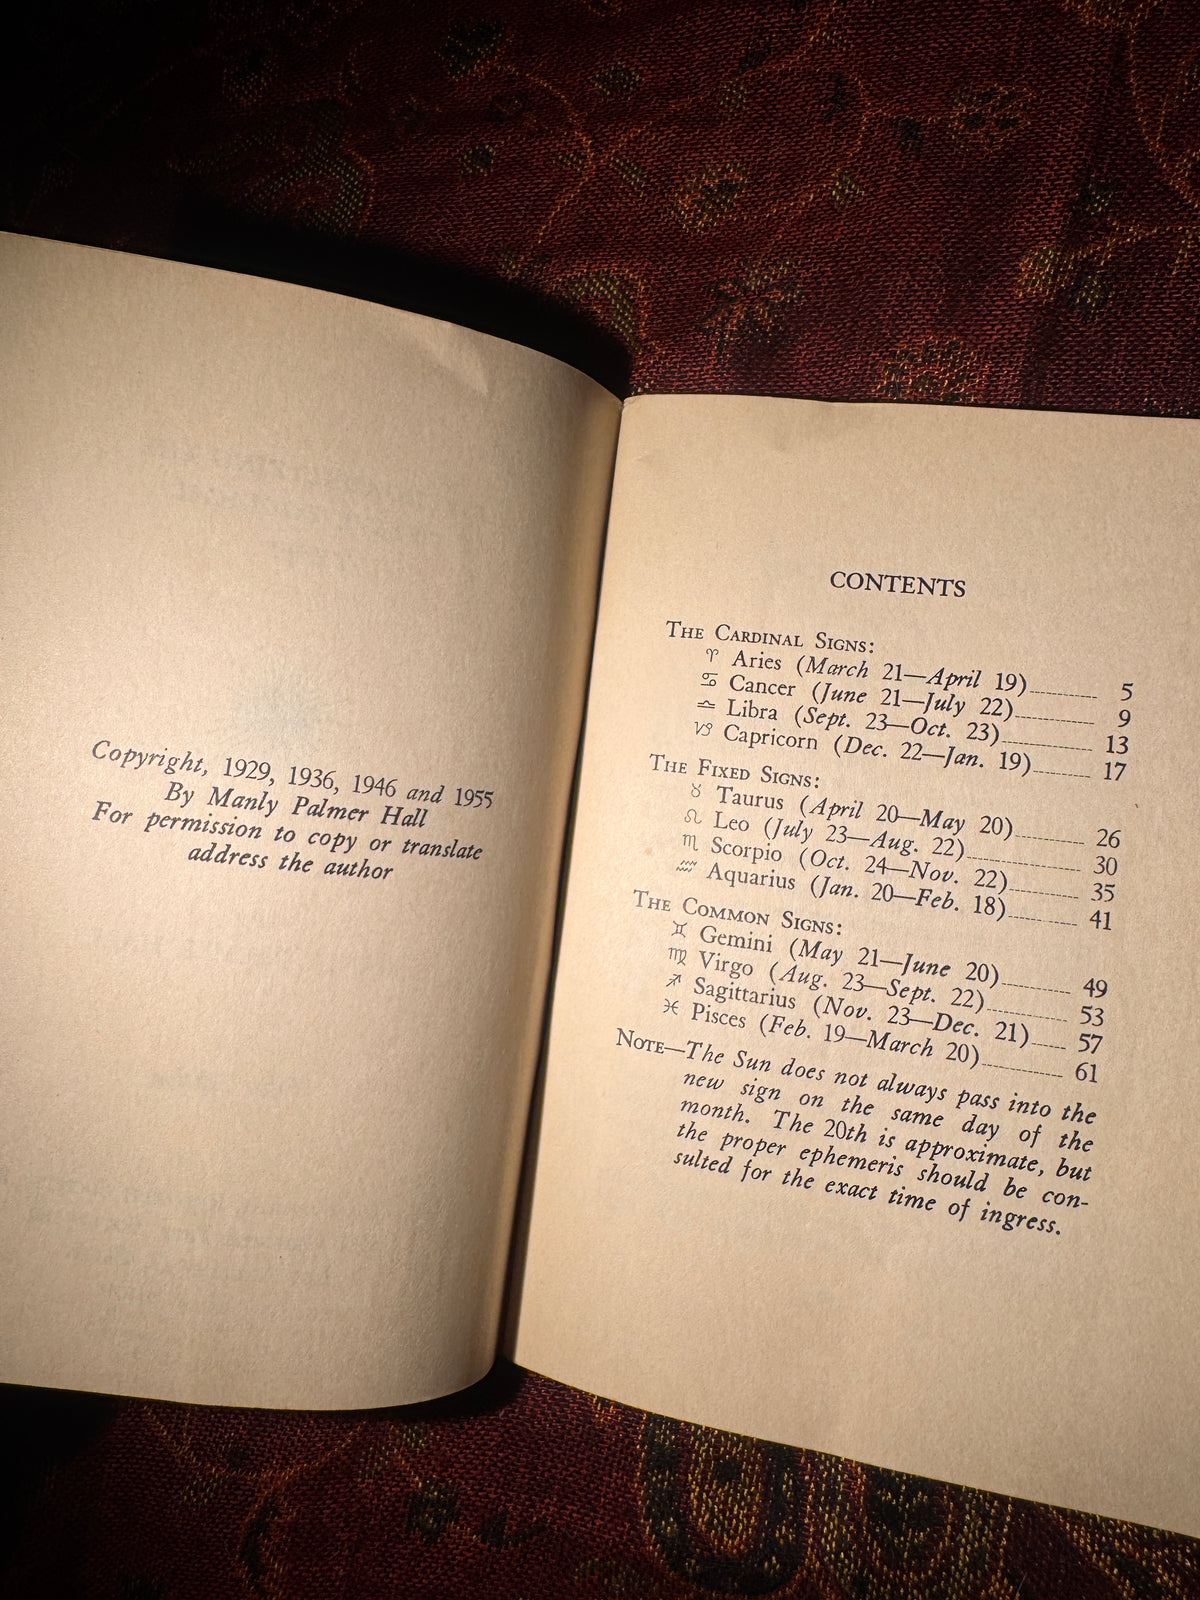 Copyright, 1929, 1936, 1946 and 1955
By Manly Palmer Hall
For permission to copy or translate
address the author
CONTENTS
The Cardinal Signs:
♈ Aries (March 21—April 19) 5
♋ Cancer (June 21—July 22) 9
♎ Libra (Sept. 23—Oct. 23) 13
♑ Capricorn (Dec. 22—Jan. 19) 17
The Fixed Signs:
♉ Taurus (April 20—May 20) 26
♌ Leo (July 23—Aug. 22) 30
♏ Scorpio (Oct. 24—Nov. 22) 35
♒ Aquarius (Jan. 20—Feb. 18) 41
The Common Signs:
♊ Gemini (May 21—June 20) 49
♍ Virgo (Aug. 23—Sept. 22) 53
♐ Sagittarius (Nov. 23—Dec. 21) 57
♓ Pisces (Feb. 19—March 20) 61
Note—The Sun does not always pass into the
new sign on the same day of the
month. The 20th is approximate, but
the proper ephemeris should be con-
sulted for the exact time of ingress.